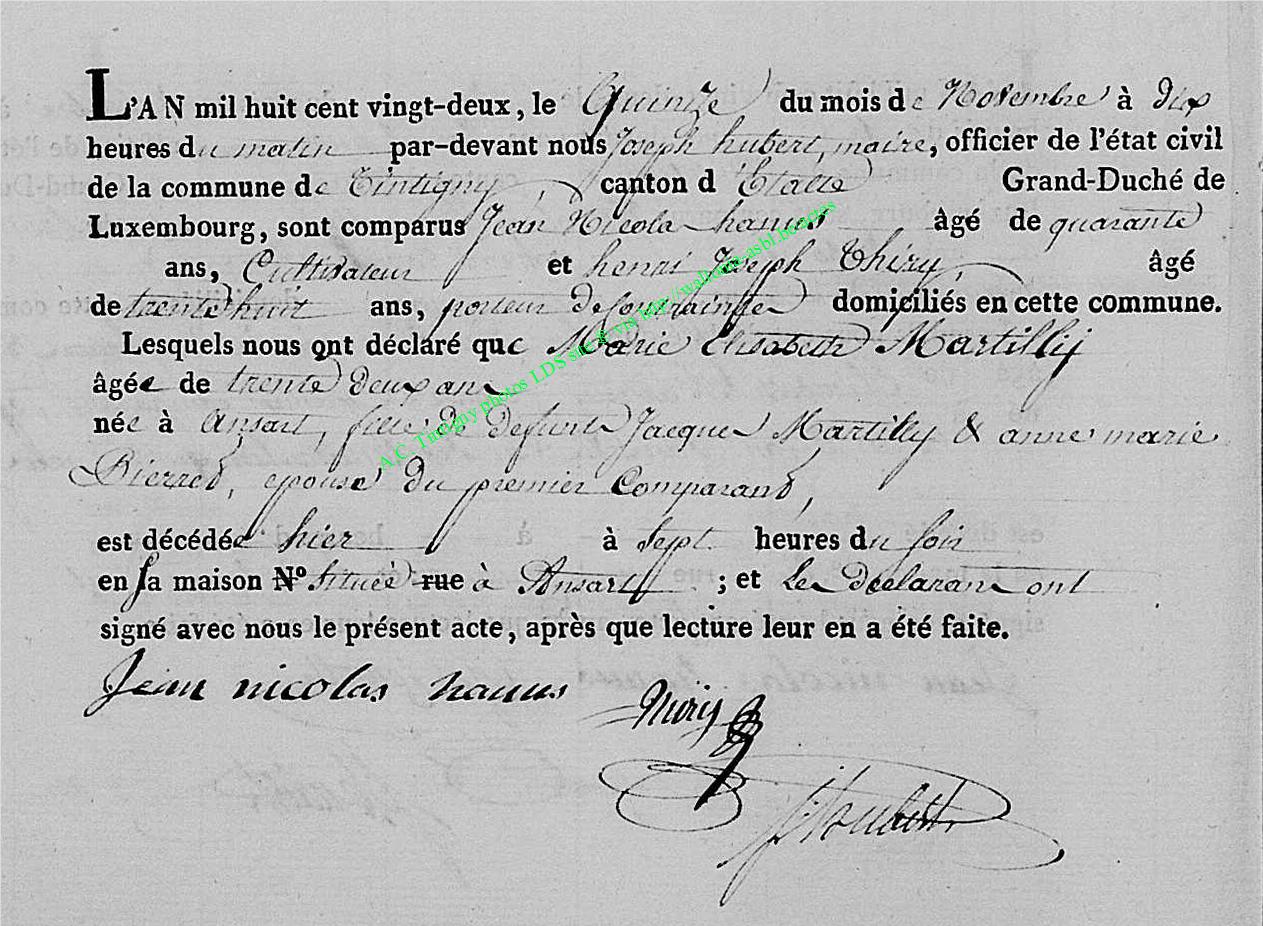 L'AN mil huit cent vingt-deux, le Quinze du mois de Novembre à dix
heures du matin par-devant nous Joseph hubert, maire, officier de l'état civil
de la commune de Tintigny, canton d Etalle Grand-Duché de
Luxembourg, sont comparus Jean Nicola hanus âgé de quarante
ans, Cultivateur et henri Joseph Thiry, âgé
de trente huit ans, porteur de Contrainte domiciliés en cette commune.
Lesquels nous ont déclaré que Marie Elisabeth Martilly
âgée de trente deux ans
née à Ansart, fille de defunt Jacque Martilly & anne marie
Pierred, epouse du premier Comparand,
est décédée hier à Sept heures du soir
en sa maison N° située rue à Ansart ; et Les declarant ont
signé avec nous le présent acte, après que lecture leur en a été faite.
Jean nicolas hanus
Thiry
Hubert
A.C. Tintigny photos LDS site & via http://wallonia-asbl.be/actes